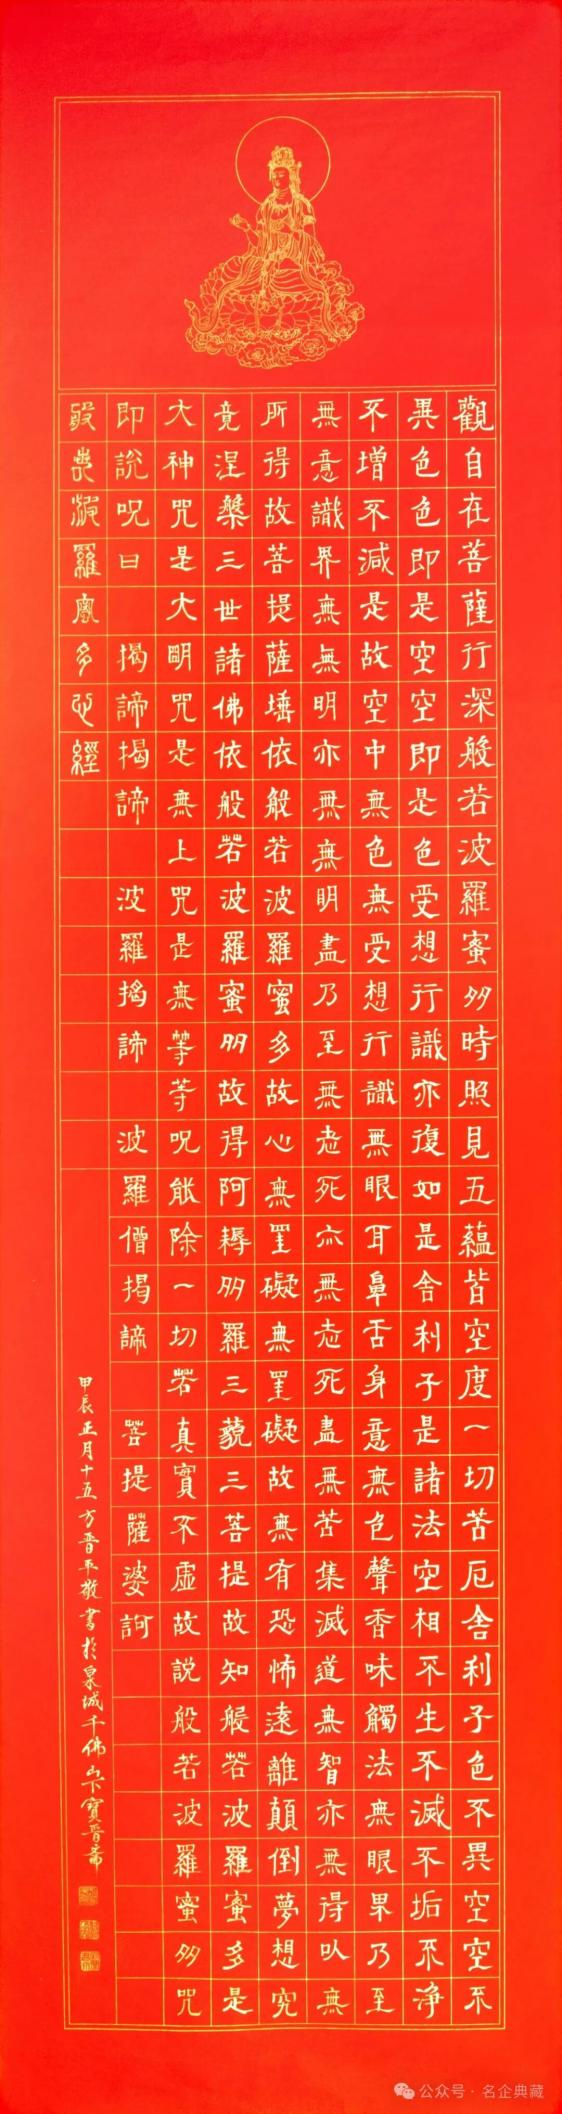 觀自在菩薩行深般若波羅蜜多時照見五蘊皆空度一切苦厄舍利子色不異空空不
異色色即是空空即是色受想行識亦復如是舍利子是諸法空相不生不滅不垢不淨
不增不減是故空中無色無受想行識無眼耳鼻舌身意無色聲香味觸法無眼界乃至
無意識界無無明亦無無明盡乃至無老死亦無老死盡無苦集滅道無智亦無得以無
所得故菩提薩埵依般若波羅蜜多故心無罣礙無罣礙故無有恐怖遠離顛倒夢想究
竟涅槃三世諸佛依般若波羅蜜多故得阿耨多羅三藐三菩提故知般若波羅蜜多是
大神咒是大明咒是無上咒是無等等呪能除一切苦真實不虛故說般若波羅蜜多咒
即說呪曰 揭諦揭諦 波羅揭諦 波羅僧揭諦 菩提薩婆訶
般若波羅蜜多心經
甲辰正月十五方晉平敬書於泉城千佛山下寶晉齋
公众号 · 名企典藏